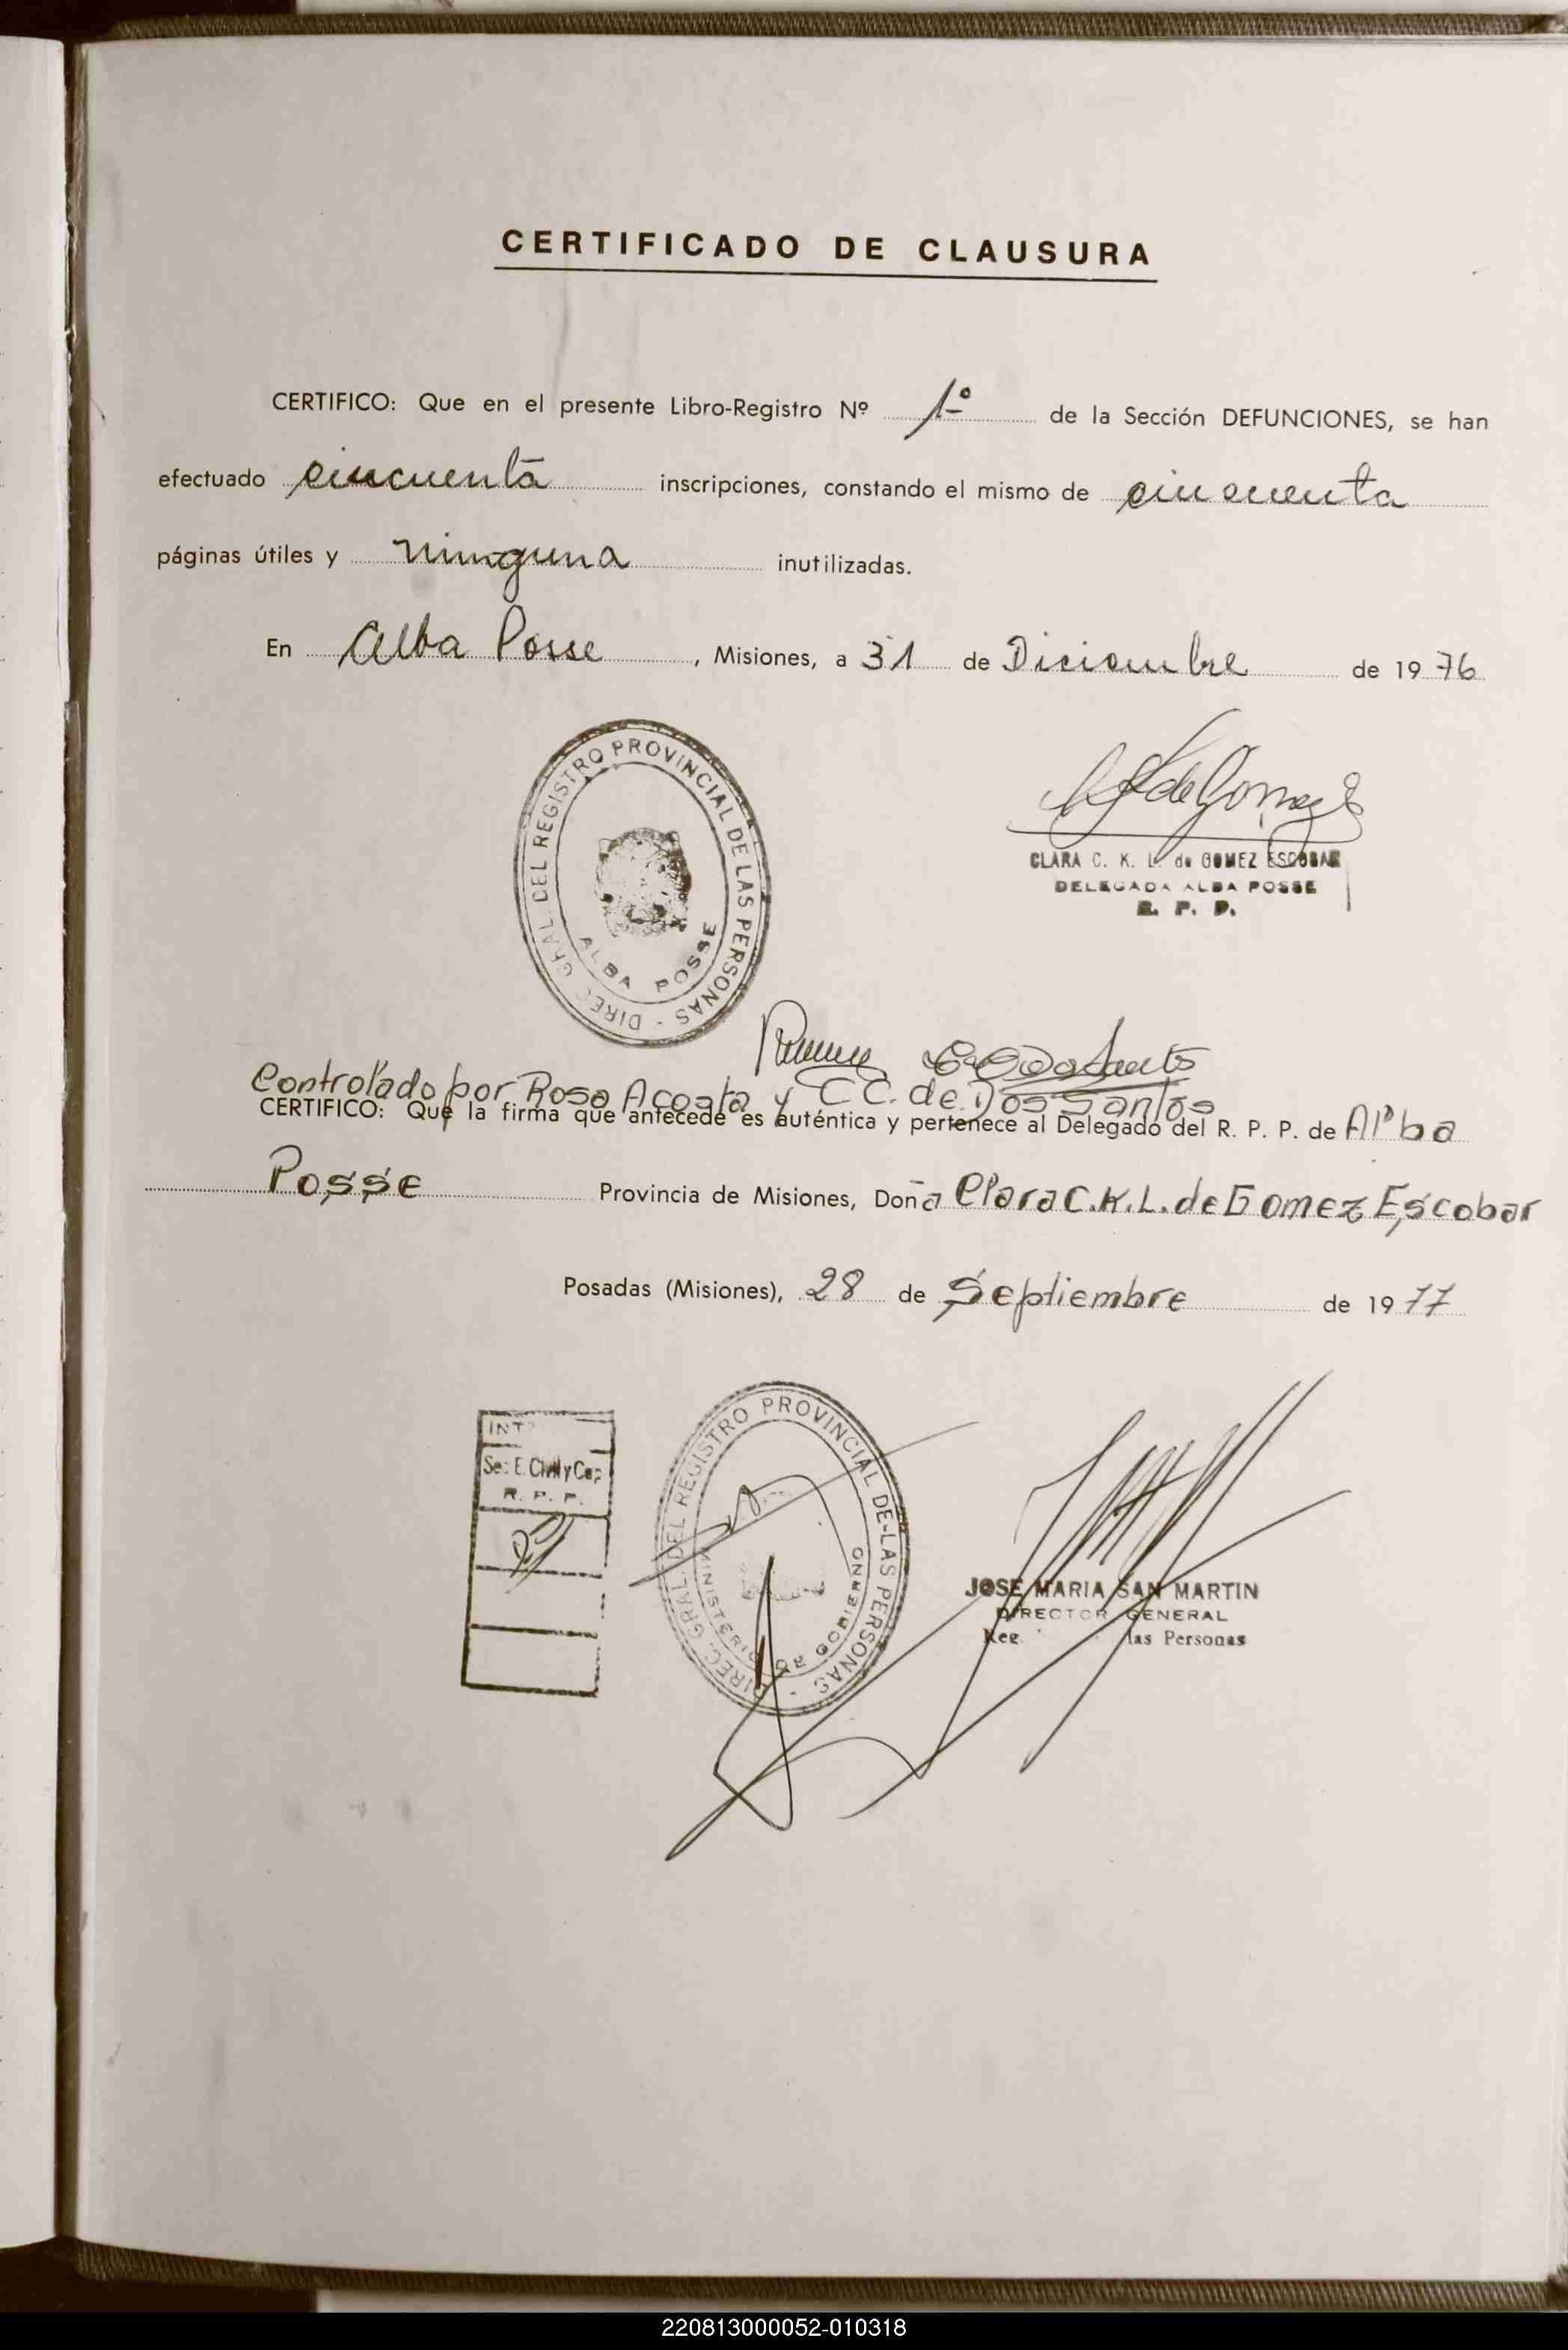 CERTIFICADO DE CLAUSURA
CERTIFICO: Que en el presente Libro-Registro Nº 1º de la Sección DEFUNCIONES, se han
efectuado cincuenta inscripciones, constando el mismo de cincuenta
páginas útiles y ninguna inutilizadas.
En Alba Posse, Misiones, a 31 de Diciembre de 1976
DIREC. GRAL. DEL REGISTRO PROVINCIAL DE LAS PERSONAS -
ALBA POSSE
CLARA C. K. L. de GOMEZ ESCOBAR
DELEGADA ALBA POSSE
R. P. P.
Controlado por Rosa Acosta y C C. de Dos Santos
CERTIFICO: Que la firma que antecede es auténtica y pertenece al Delegado del R. P. P. de Alba
Posse Provincia de Misiones, Doña Clara C. K. L. de Gomez Escobar
Posadas (Misiones), 28 de Septiembre de 1977
Sec E. Civil y Cap
R. P. P.
DIREC. GRAL. DEL REGISTRO PROVINCIAL DE LAS PERSONAS -
MINISTERIO DE GOBIERNO
JOSE MARIA SAN MARTIN
DIRECTOR GENERAL
Reg. las Personas
220813000052-010318